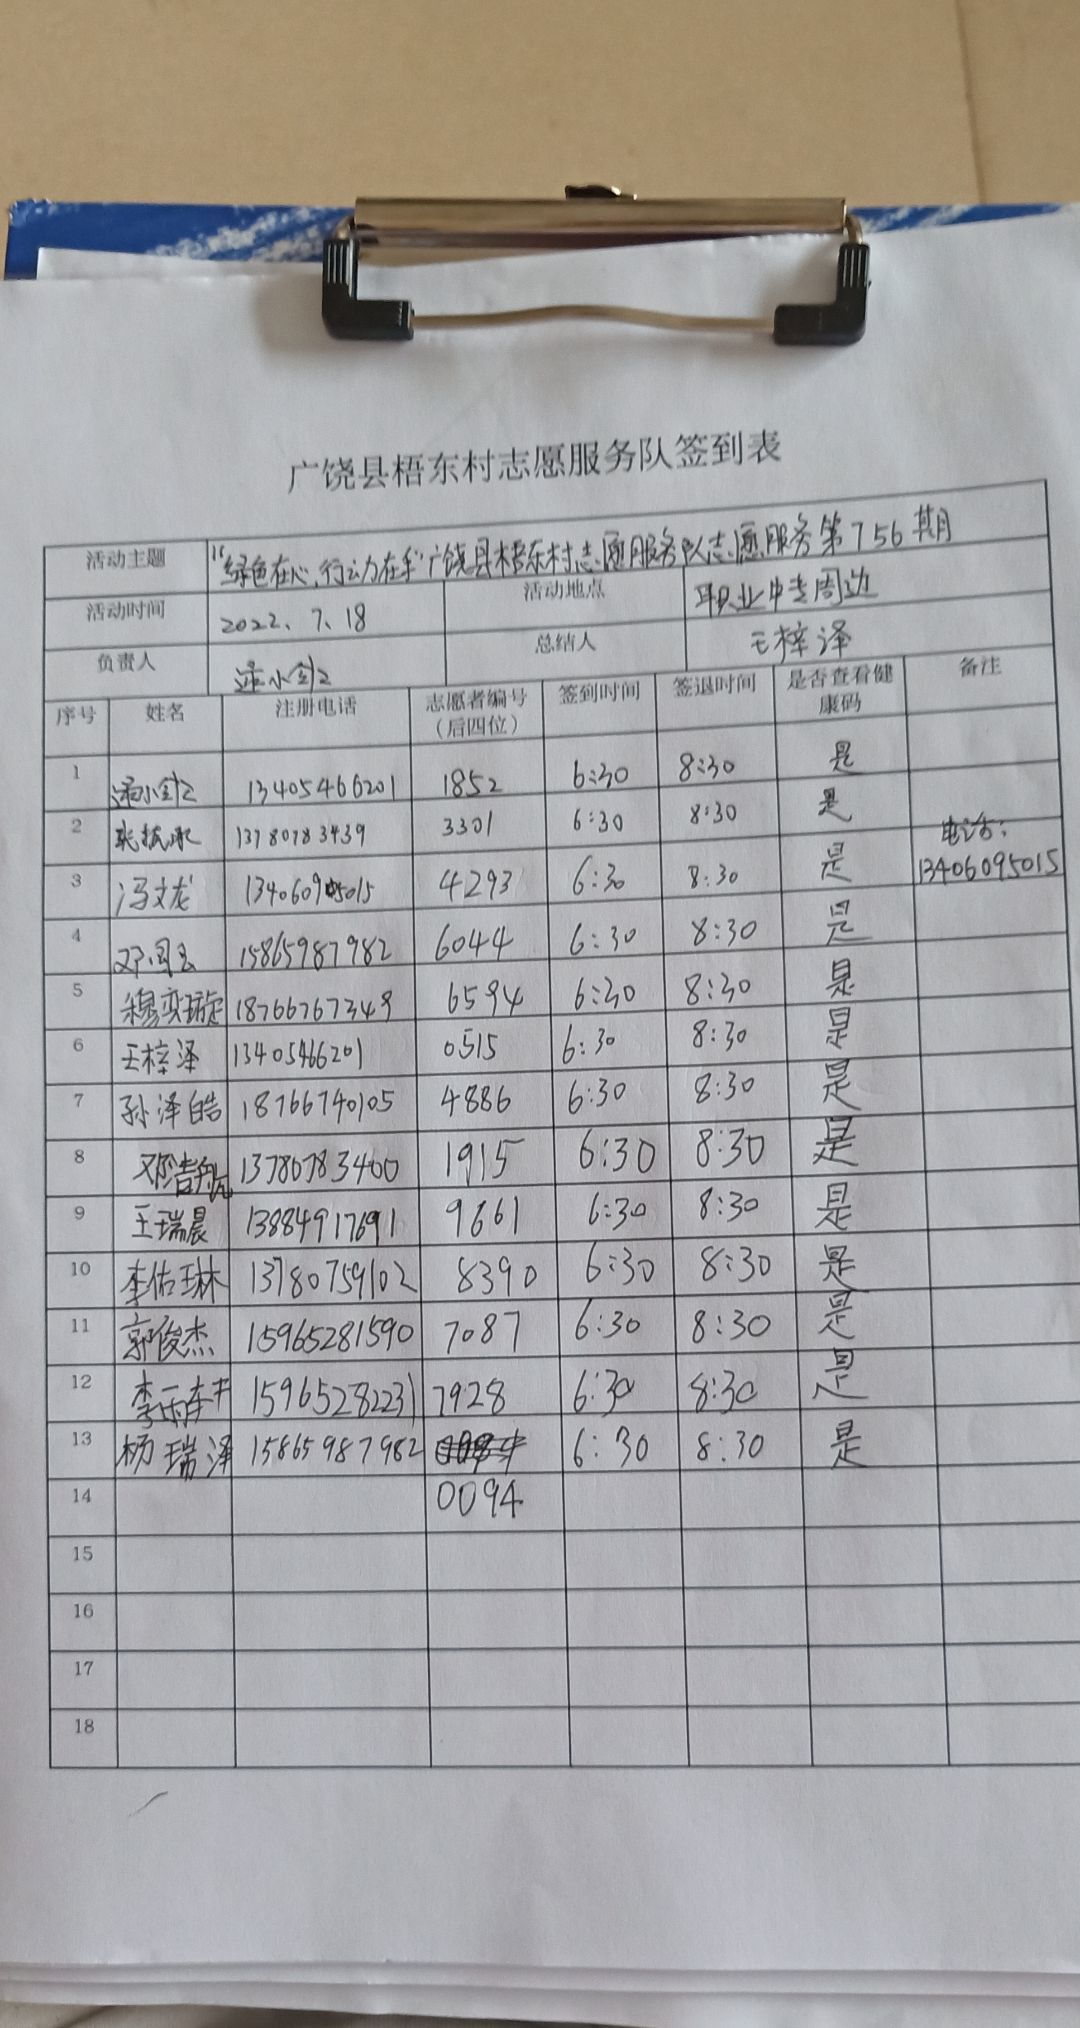 广饶县梧东村志愿服务队签到表
活动主题 "绿色在心,行动力在手"广饶县梧东村志愿服务队志愿服务第756期
活动时间 2022、7、18 活动地点 职业中专周边
负责人 总结人 王梓泽
序号 姓名 注册电话 志愿者编号(后四位) 签到时间 签退时间 是否查看健康码 备注
1 13405466201 1852 6:30 8:30 是
2 13780783439 3301 6:30 8:30 是
3 冯文龙 13406095015 4293 6:30 8:30 是 电话:13406095015
4 15865987982 6044 6:30 8:30 是
5 穆奕璇 18766767349 6594 6:30 8:30 是
6 王梓泽 13405466201 0515 6:30 8:30 是
7 孙泽皓 18766740105 4886 6:30 8:30 是
8 邓浩航 13780783400 1915 6:30 8:30 是
9 王瑞晨 13884917691 9661 6:30 8:30 是
10 李佑琳 13780759102 8390 6:30 8:30 是
11 郭俊杰 15965281590 7087 6:30 8:30 是
12 15965282231 7928 6:30 8:30 是
13 杨瑞泽 15865987982 6:30 8:30 是
14 0094
15
16
17
18